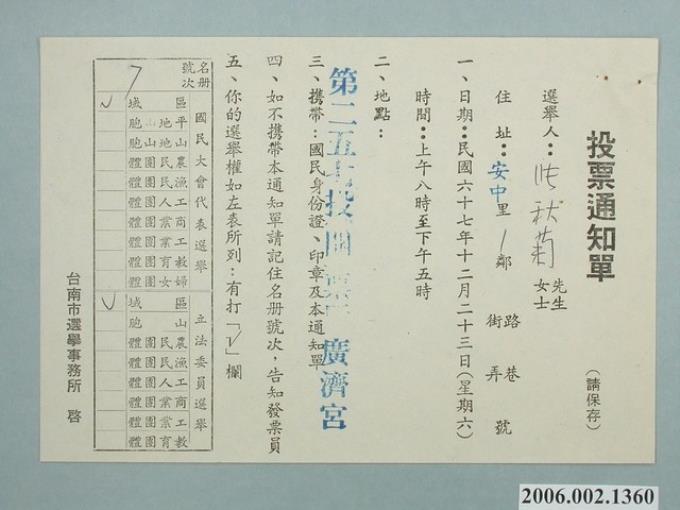 投票通知單
(請保存)
選舉人：秋菊 先生 女士
住址：安中里 1 鄰 街路 巷弄 號
一、日期：民國六十七年十二月二十三日(星期六)
時間：上午八時至下午五時
二、地點：
第二五 投開票 廣濟宮
三、攜帶：國民身份證、印章及本通知單
四、如不攜帶本通知單請記住名册號次，告知發票員
五、你的選舉權如左表所列：有打「√」欄
名册號次
7
國民大會代表選舉
區域 √
平地山胞
山地山胞
農民團體
漁民團體
工人團體
商業團體
工業團體
教育團體
婦女團體
立法委員選舉
區域 √
山胞
農民團體
漁民團體
工人團體
商業團體
工業團體
教育團體
台南市選舉事務所 啓
2006.002.1360